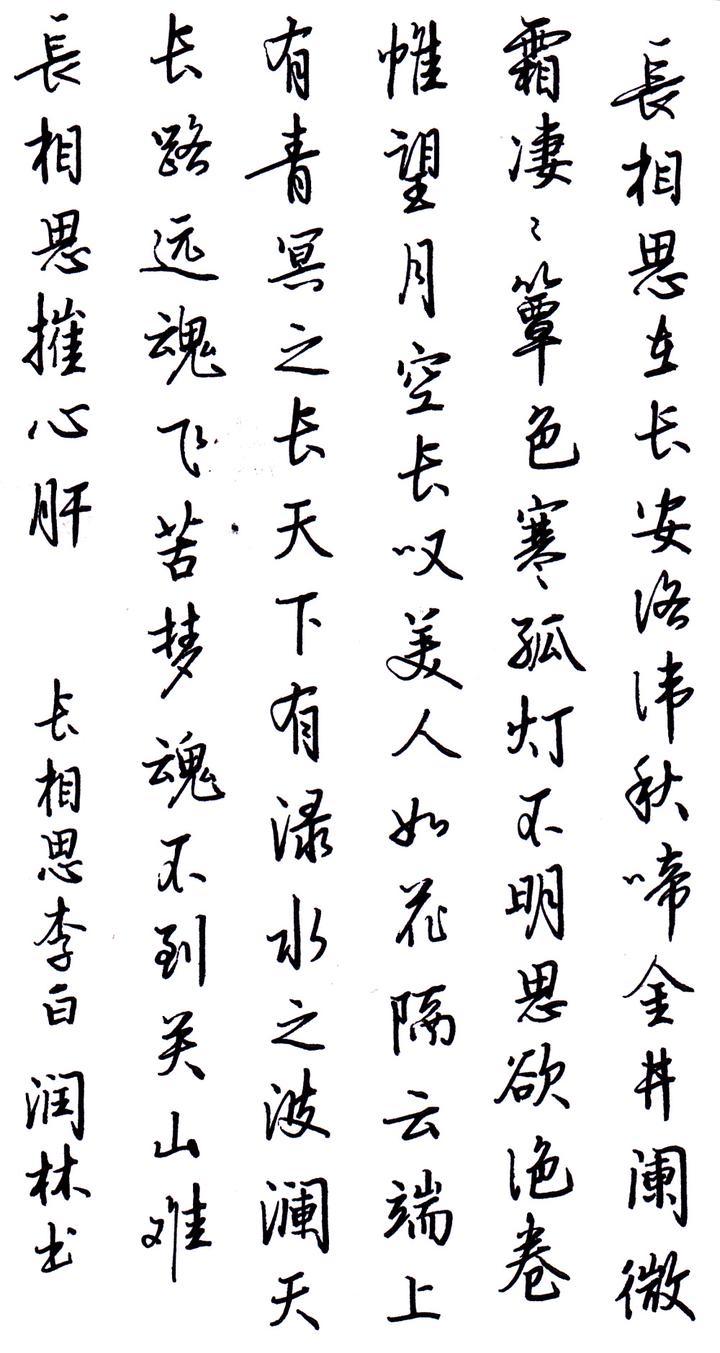 長相思在长安络纬秋啼金井阑微
霜凄々簟色寒孤灯不明思欲绝卷
帷望月空长叹美人如花隔云端上
有青冥之长天下有渌水之波澜天
长路远魂飞苦梦魂不到关山难
長相思摧心肝 长相思李白 润林书